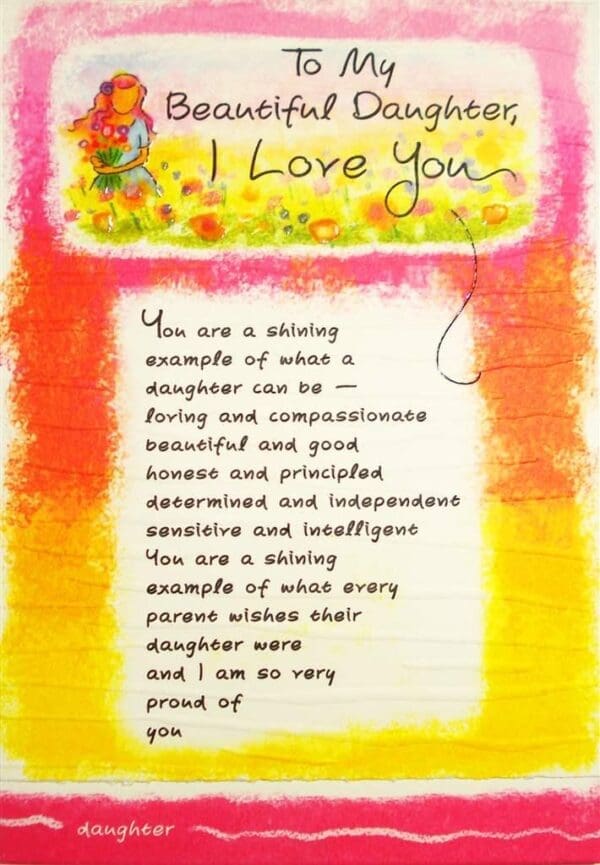 To My
Beautiful Daughter,
I Love You
You are a shining
example of what a
daughter can be —
loving and compassionate
beautiful and good
honest and principled
determined and independent
sensitive and intelligent
You are a shining
example of what every
parent wishes their
daughter were
and I am so very
proud of
you
daughter